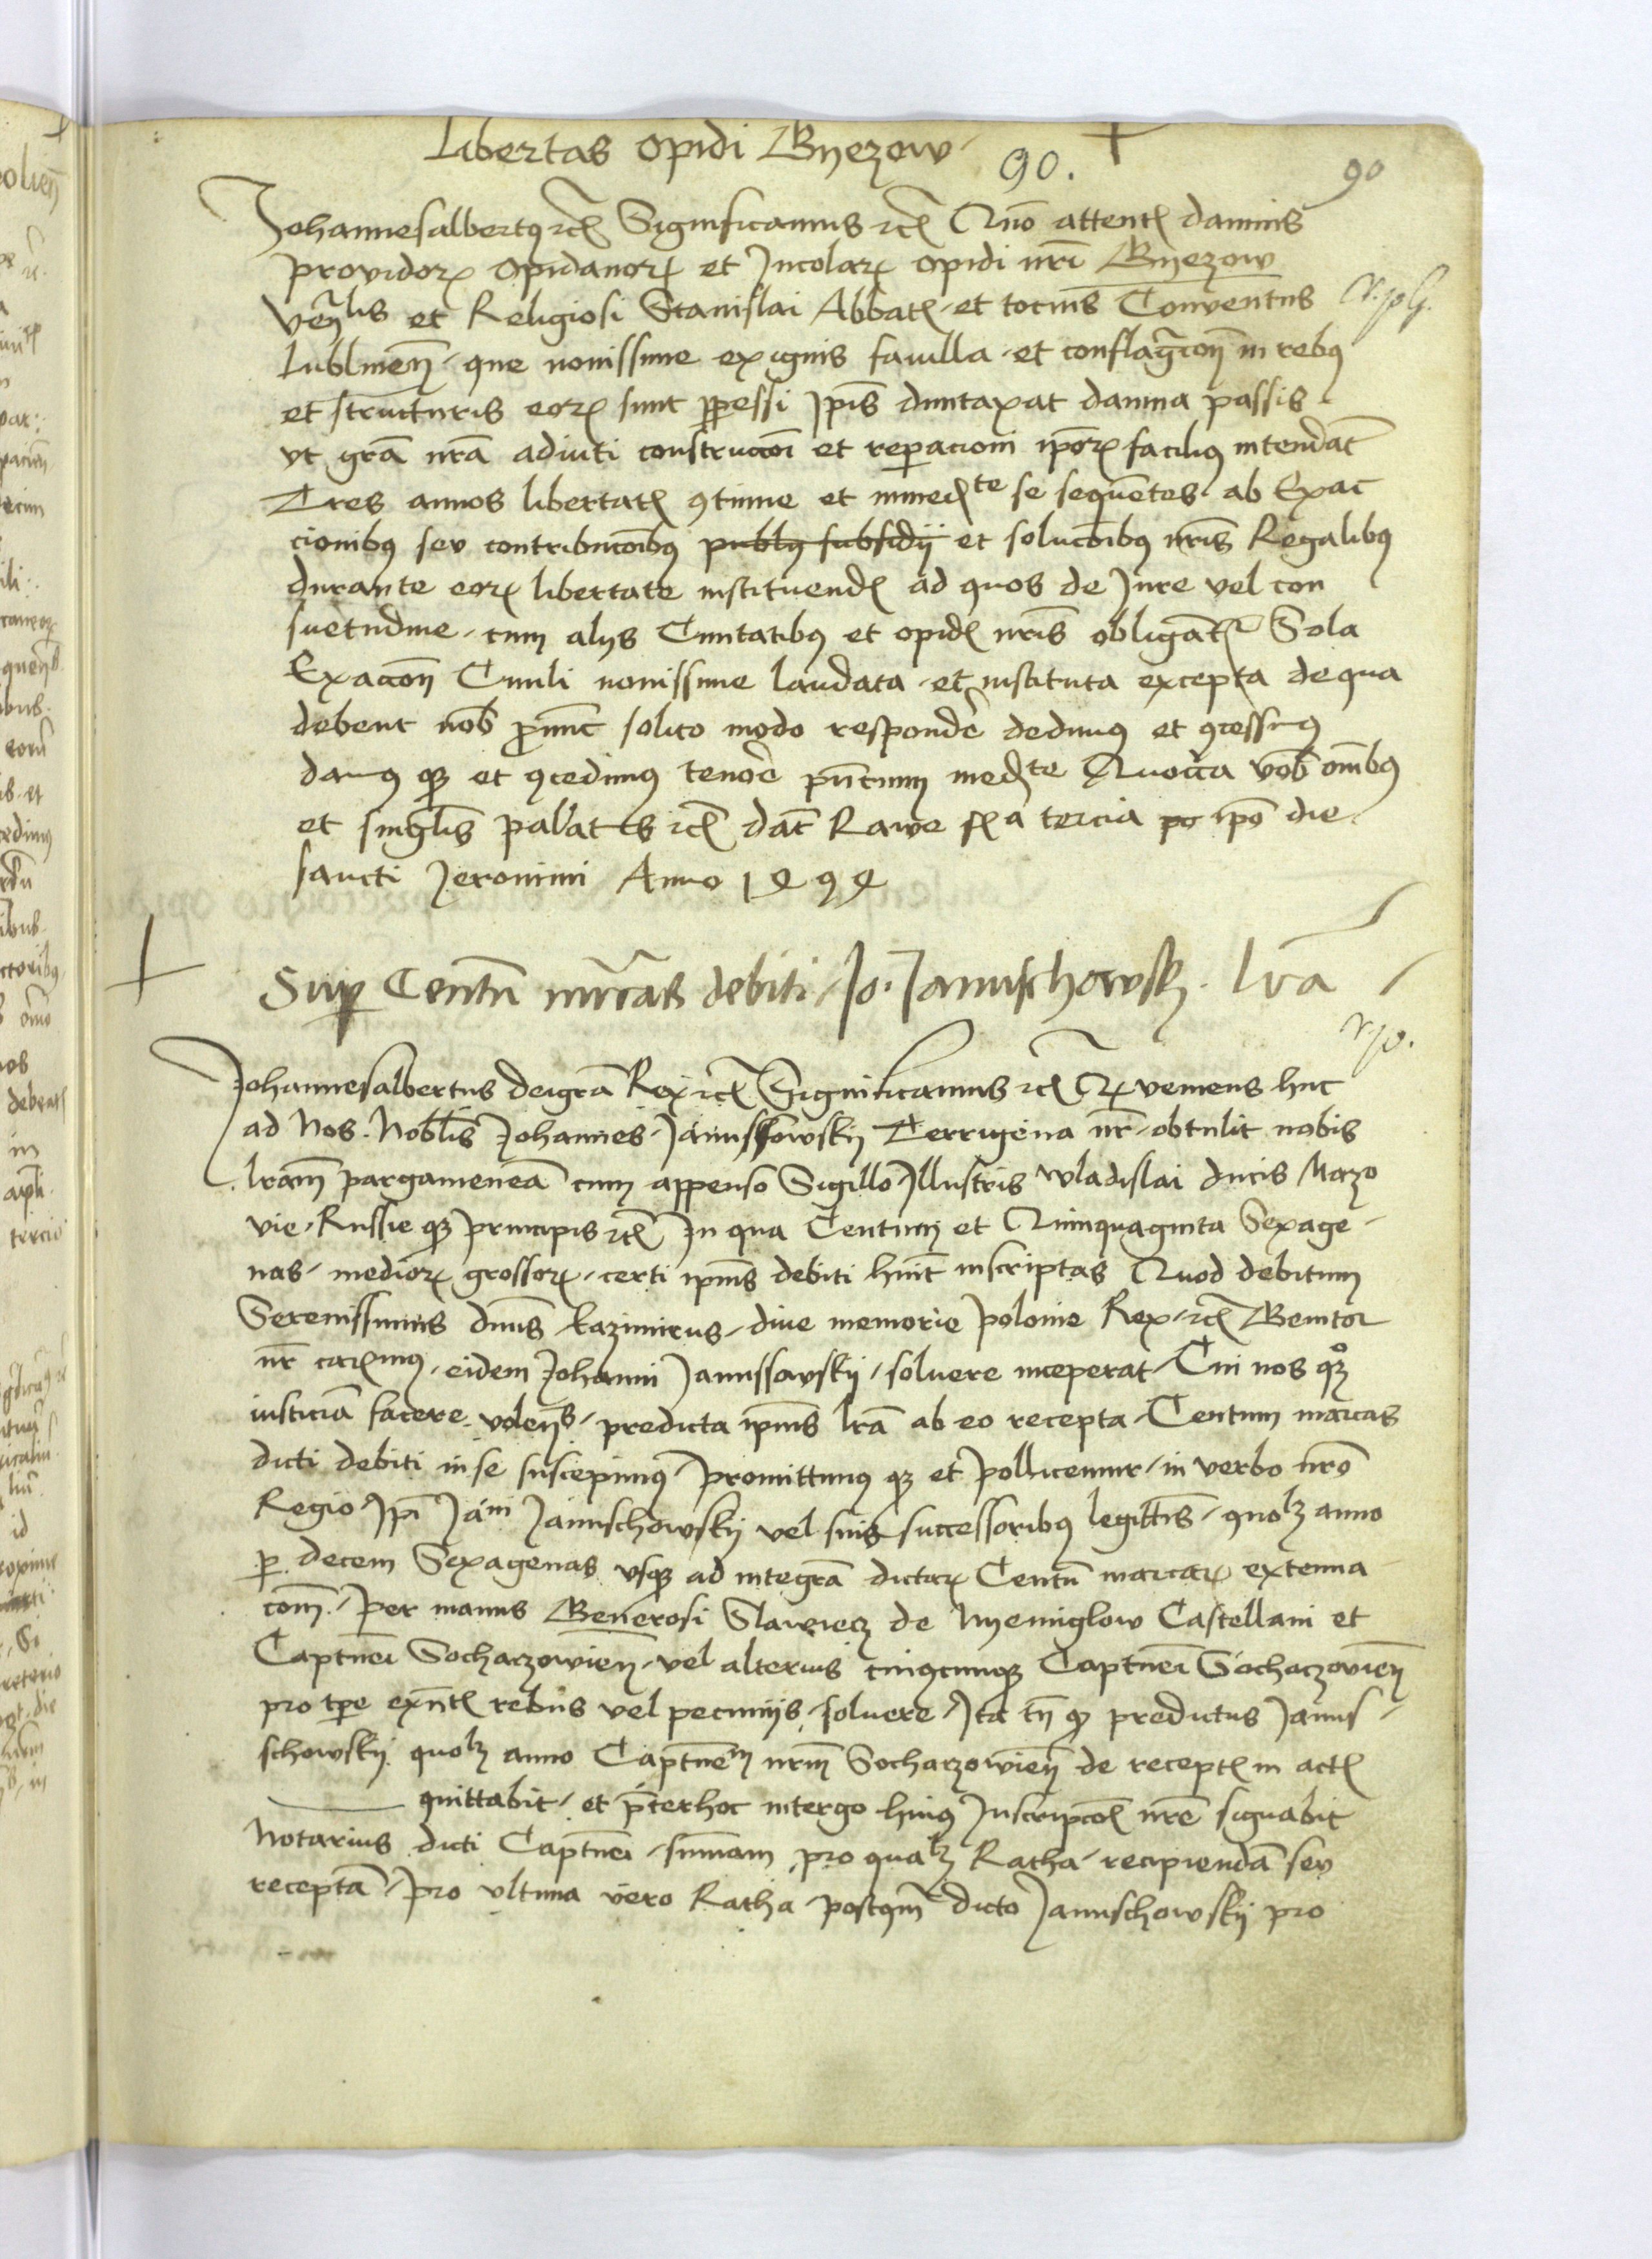 Libertas opidi Gnezow
90. 90
Johannesalbertus rc̃ Significamus rc̃ Quō attent̃ damnis
providor̃ opidanor̃ et Incolar̃ opidi nr̃i Gnezow
Ven̄lis et Religiosi Stanislai Abbat̃ et tocius Conventus
Lublinen̄ que novissime ex ignis favilla et conflagr̄con̄ in rebus
et structuris eor̃ sunt ꝑpessi Ip̄is duntaxat damna passis
vt gr̄a nr̄a adiuti construccōi et reparacioni ip̄or̃ facilius intendāt
Tres annos libertat̃ ꝯtinue et immed̃te se sequentes ab Exac
cionibus seu contribucōibus publ subsidij et solucōibus nr̄is Regalibus
durante eor̃ libertate instituend̃ ad quos de Jure vel con
suetudine cum alijs Civitatibus et opid̃ nr̄is obligant̃ Sola
Exaccōn Civili novissime laudata et instituta excepta de qua
debent nob̄ ꝓnunc solito modo respondē dedimus et ꝯcessimus
damus qꝫ et ꝯcedimus tenorē pn̄tium med̃te Quocīca vob̄ om̄ibus
et singl̄is palat̄ts rc̃ dat̄ Rawe f̃a tercia po ip̄o die
sancti Jeronimi Anno 1494
Suꝑ Centū mr̄cas debiti Jo. Januschowsky lr̄a
Johannesalbertus dei gr̄a Rex rc̃ Significamus rc̃ Qꝫ veniens huc
ad Nos Nobl̄is Johannes Janussowskij Terrigena nr̄ obtulit nobis
lr̄am pargameneā cum appenso Sigillo Illustris Wladislai ducis Mazo
vie Russie qꝫ principis rc̃ In qua Centum et Quinquaginta Sexage
nas medior̃ grossor̃ certi ip̄ius debiti hūit inscriptas Quod debitum
Serenissimus dn̄us Kazimirus dive memorie Polonie Rex rc̃ Genitor
nr̄ car̃imus eidem Johanni Janussowskij solvere inceperat Cui nos qꝫ
iusticiā facere volen̄s predicta ip̄ius lr̄a ab eo recepta Centum marcas
dicti debiti in se suscepimus Promittimus qꝫ et Pollicemur in verbo nr̄o
Regio Ip̄i Jani Januschowskij vel suis successoribus legitt̄is quolꝫ anno
ꝑ decem Sexagenas vsqꝫ ad integrā dictar̃ Centū marcar̃ extenua
com̄ Per manus Generosi Slawiecz de Nyemiglow Castellani et
Captn̄ei Sochaczowien̄ vel alterius cuiuscunqꝫ Captn̄ei Sochaczovien̄
pro tp̄e exn̄t̃ rebus vel pecunijs solvere Ita tn̄ qꝫ predictus Janus
schowskij quolꝫ anno Captn̄em nr̄m Sochaczowien̄ de recept̃ in act̃
quittabit et p̄terhoc intergo huius Inscripcōīs nr̄e signabit
Notarius dicti Captn̄ei sum̄am pro qualꝫ Ratha recipiendā seu
receptā Pro ultima vero Ratha postqm̄ dicto Januschowskij pro